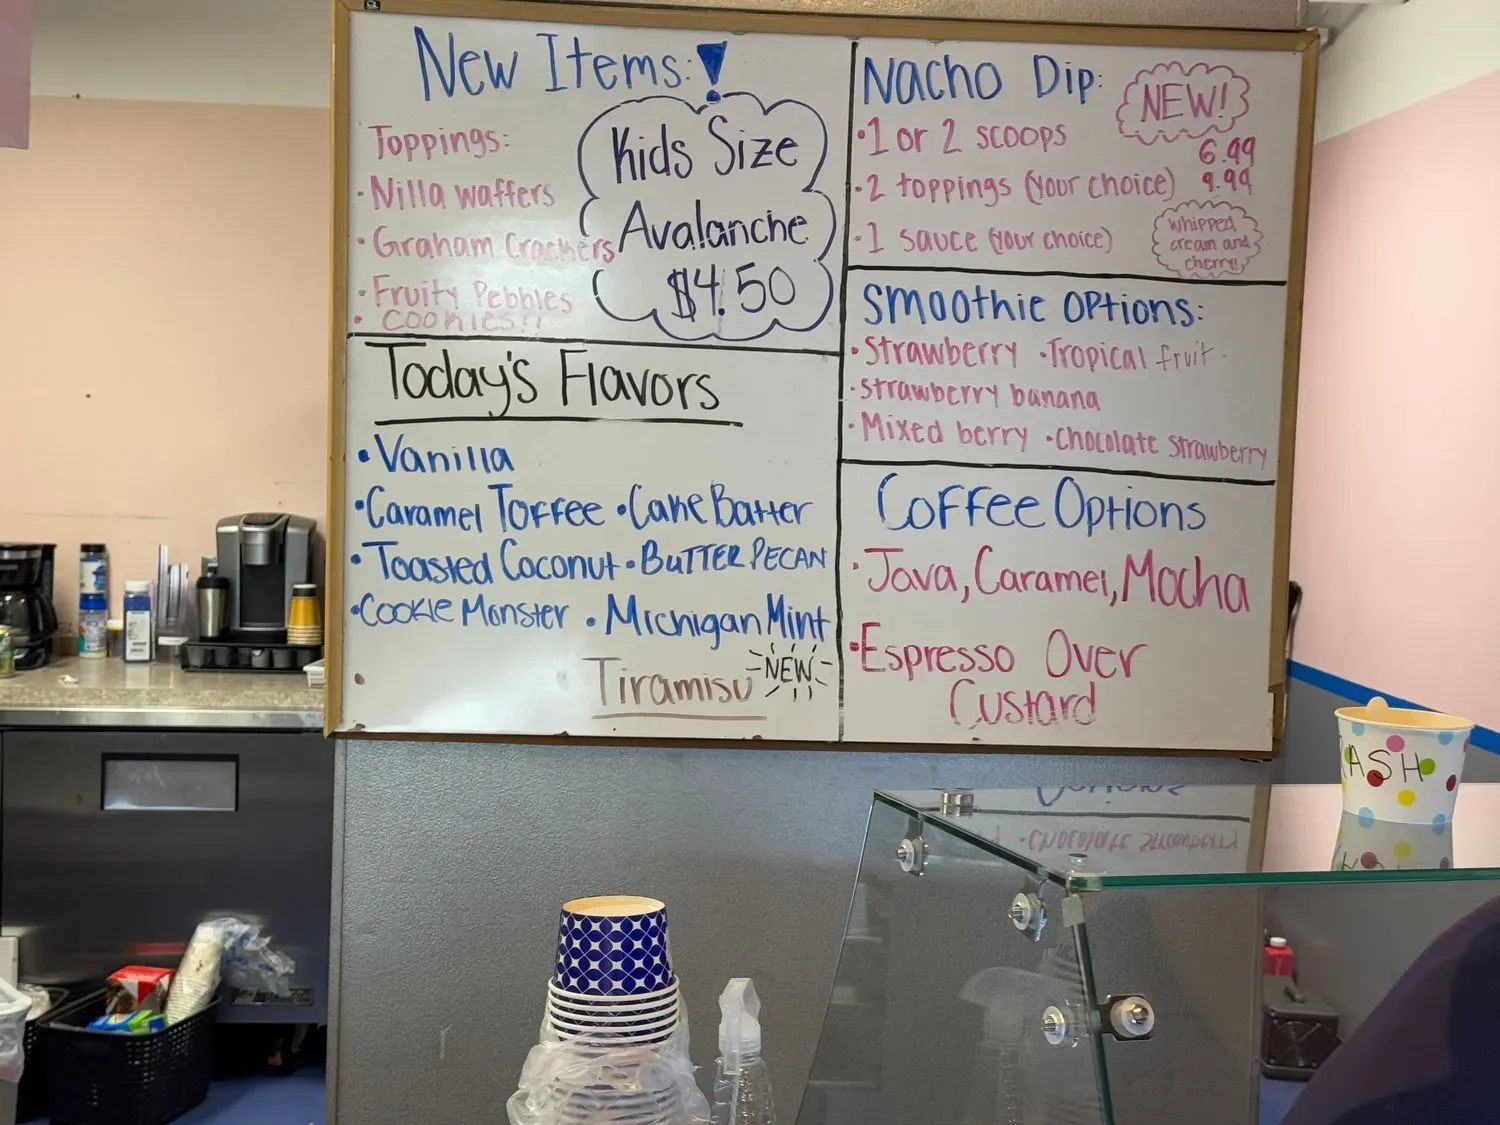 New Items:!
Toppings:
· Nilla waffers
· Graham Crackers
· Fruity Pebbles
· COOKIES!!
Kids Size
Avalanche
$4.50
Today's Flavors
• Vanilla
• Caramel Toffee • Cake Batter
• Toasted Coconut • BUTTER PECAN
• Cookie Monster • Michigan Mint
Tiramisu NEW
Nacho Dip:
NEW!
• 1 or 2 scoops 6.99
· 2 toppings (your choice) 9.99
· 1 sauce (your choice)
Whipped
cream and
cherry!
Smoothie Options:
• Strawberry · Tropical fruit
· Strawberry banana
· Mixed berry · Chocolate Strawberry
Coffee Options
· Java, Caramel, Mocha
• Espresso Over
Custard